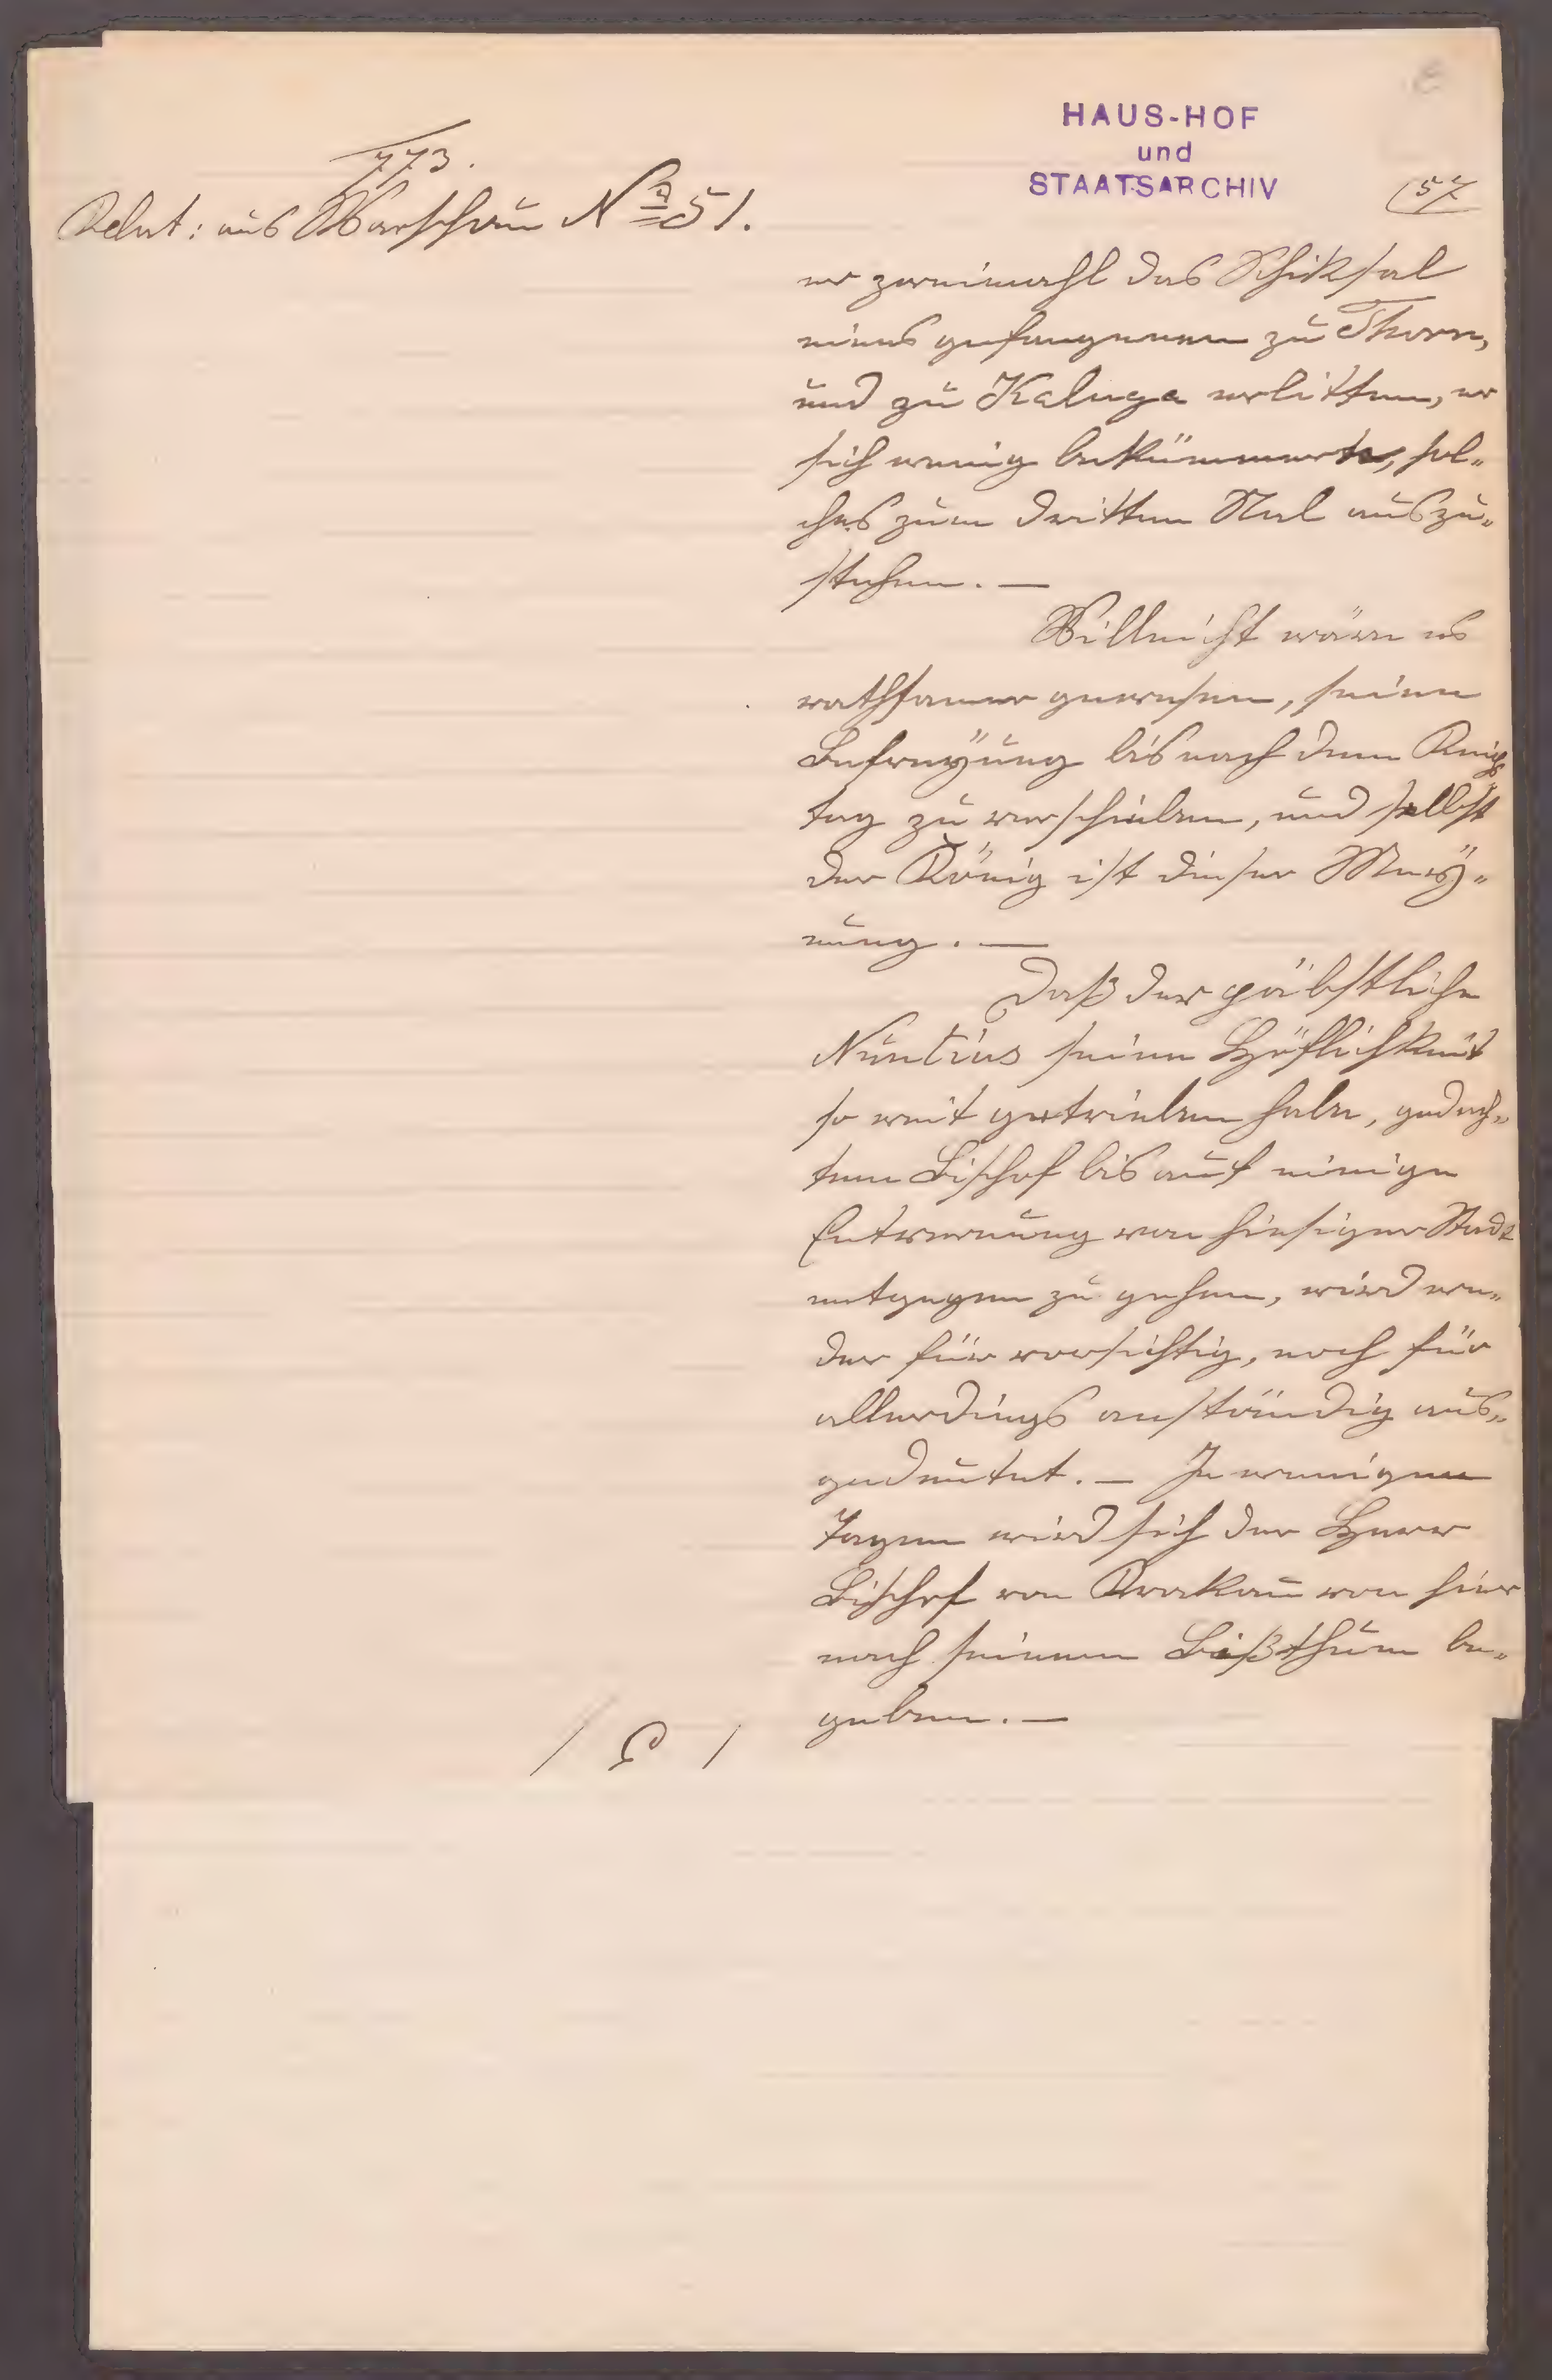 HAUS-HOF
und
STAATSARCHIV
57
773.
Relat: aus Warschau No 51.
er zweimahl das Schiksal
eines gefangenen zu Thorn,
und zu Kaluga erlitten, er
sich wenig bekümmerte, sol„
ches zum dritten Mal auszu„
stehen. —
Villeicht wäre es
rathsamer gewesen, seine
Befreÿung bis nach dem Reichs
tag zu verschieben, und selbst
der König ist dieser Meÿ„
nung. —
Daß der päbstliche
Nuntius seine Höflichkeit
so weit getrieben habe, gedach„
tem Bischof bis auf einige
Entvernung von hiesiger Stadt
entgegen zu gehen, wird we„
der für vorsichtig, noch für
allerdings anständig aus„
gedeutet. — In wenigen
Tagen wird sich der Herr
Bischof von Krakau von hier
nach seinem Bißthum be„
geben. —